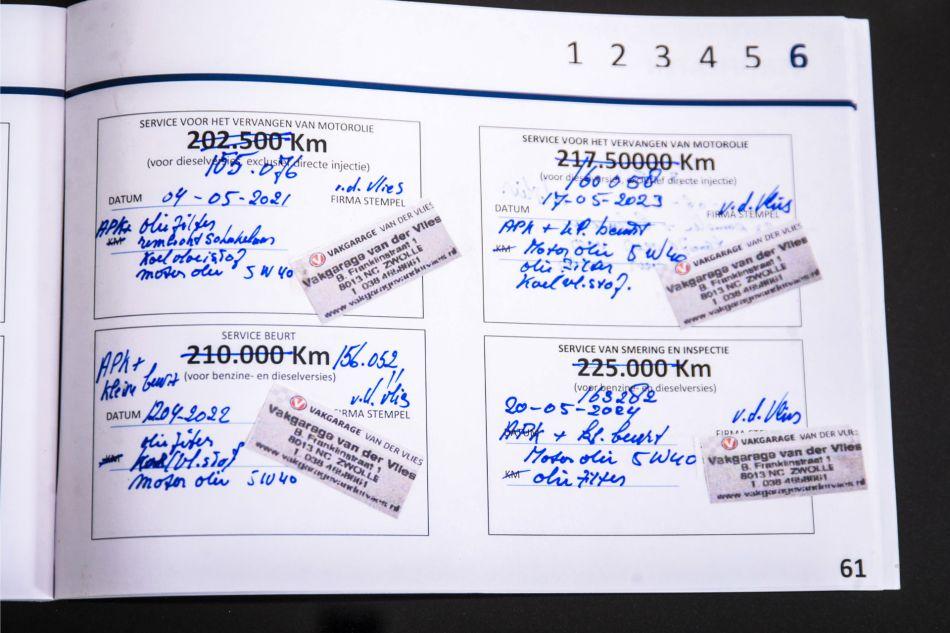 1 2 3 4 5 6
SERVICE VOOR HET VERVANGEN VAN MOTOROLIE
202.500 Km
(voor dieselversies, exclusief directe injectie)
v.d. Vlies
DATUM 04-05-2021
FIRMA STEMPEL
APK+ olie filter
KM
Koelvloeistof
motor olie 5W40
VAKGARAGE VAN DER VLIES
Vakgarage van der Vlies
B. Franklinstraat 1
8013 NC ZWOLLE
T. 038 4658661
www.vakgaragevandervlies.nl
SERVICE VOOR HET VERVANGEN VAN MOTOROLIE
217.50000 Km
(voor dieselversies, exclusief directe injectie)
DATUM 17-05-2023
v.d. Vlies
FIRMA STEMPEL
APK + kl. beurt
KM Motor olie 5W40
olie filter
Koelvl.stof.
VAKGARAGE VAN DER VLIES
Vakgarage van der Vlies
B. Franklinstraat 1
8013 NC ZWOLLE
T. 038 4658661
www.vakgaragevandervlies.nl
SERVICE BEURT
210.000 Km 156.052
APK +
klein beurt
(voor benzine- en dieselversies)
v.d. Vlies
DATUM
04-2022
FIRMA STEMPEL
olie filter
KM Koel/vl.stof
motor olie 5W40
VAKGARAGE VAN DER VLIES
Vakgarage van der Vlies
B. Franklinstraat 1
8013 NC ZWOLLE
T. 038 4658661
www.vakgaragevandervlies.nl
SERVICE VAN SMERING EN INSPECTIE
225.000 Km
(voor benzine- en dieselversies)
163282
20-05-2024
v.d. Vlies
FIRMA STEMPEL
DATUM
APK + kl. beurt
Motor olie 5W40
KM olie filter
VAKGARAGE VAN DER VLIES
Vakgarage van der Vlies
B. Franklinstraat 1
8013 NC ZWOLLE
T. 038 4658661
www.vakgaragevandervlies.nl
61